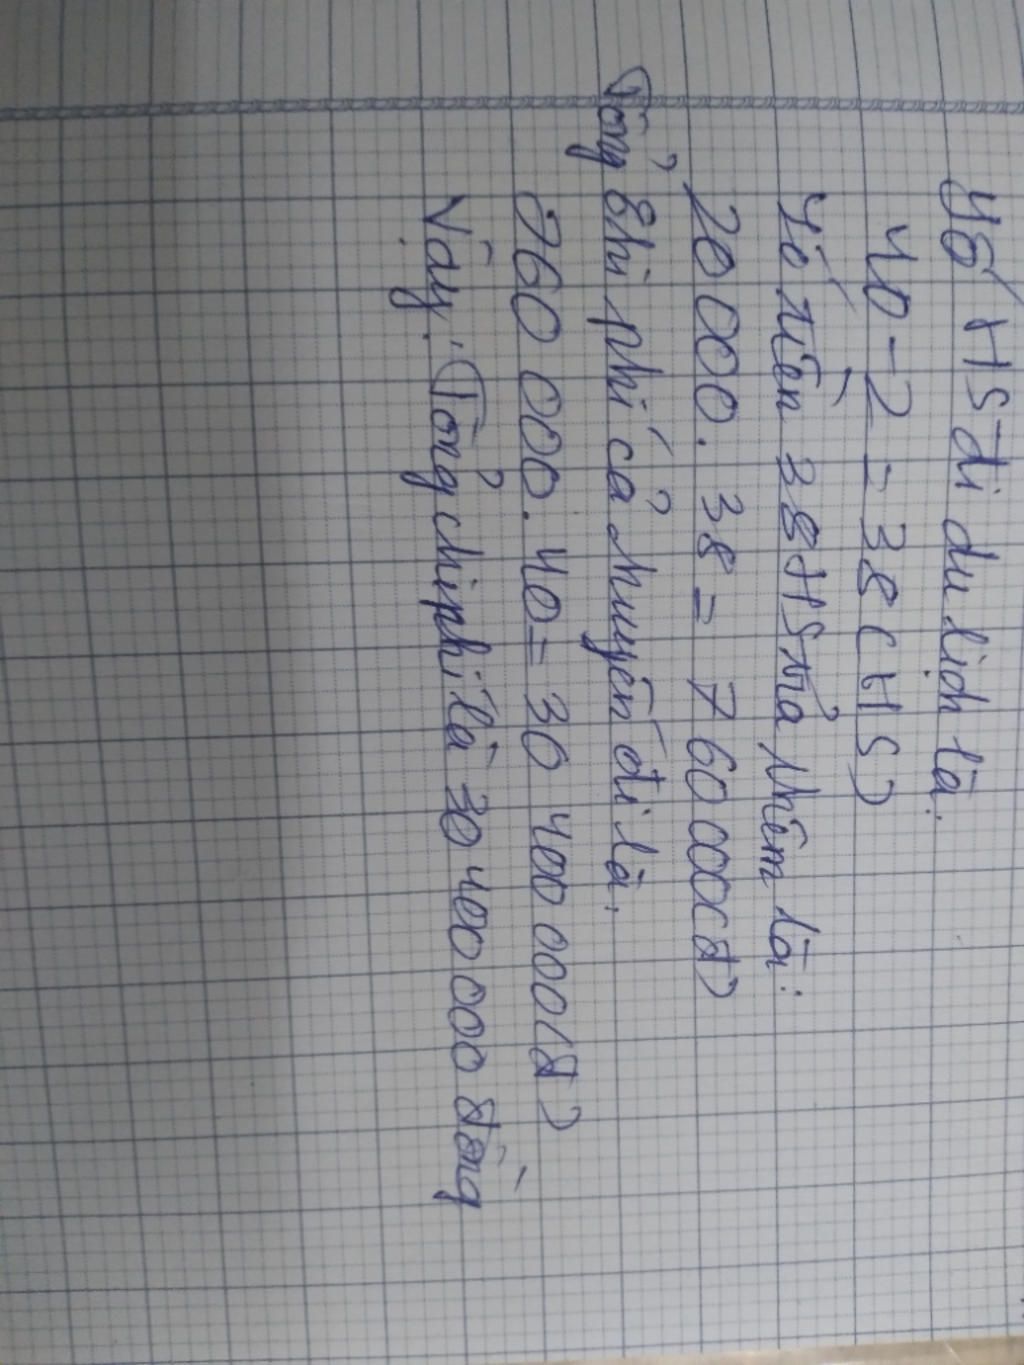 Số HS đi du lịch là.
40 - 2 = 38 (HS)
Số tiền 38 HS trả thêm là:
20 000. 38 = 760 000 (đ)
Tổng chi phí cả chuyến đi là.
760 000. 40 = 30 400 000 (đ)
Vậy. Tổng chi phí là 30 400 000 đồng